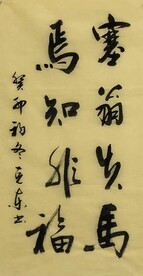 塞翁失马
焉知非福
癸卯初冬